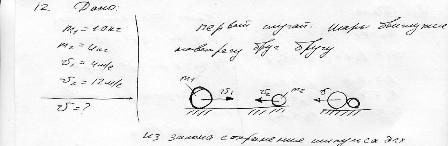 12. Дано:
m₁ = 10кг
m₂ = 4кг
υ₁ = 4м/с
υ₂ = 12м/с
υ = ?
первый случай. Шары движутся
навстречу друг другу
m₁ υ₁ υ₂ m₂ υ
из закона сохранения импульса